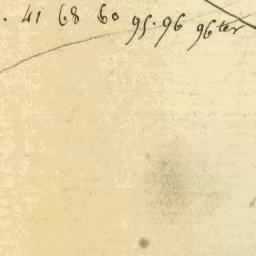 . 41 68 60 95. 96 96ter